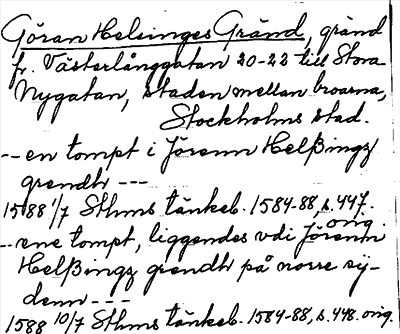 Göran Helsinges Gränd, gränd
fr. Västerlånggatan 20-22 till Stora
Nygatan, staden mellan broarna,
Stockholms stad.
-- en tompt i Jörenn Helßingz
grendh ---
1588 1/7 Sthms tänkeb. 1584-88, s. 447.
orig.
-- ene tompt, liggendes vdi Jörenn
Helßingz grendh på norre sy-
denn ---
1588 10/7 Sthms tänkeb. 1584-88, s. 448. orig.